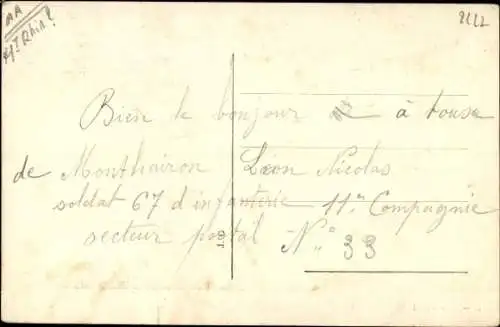 AA
Ht Rhin?
2112
Bien le bonjour à tous
de Monthairon Léon Nicolas
soldat 67 d'infanterie 11e Compagnie
secteur postal N° 33
J.G